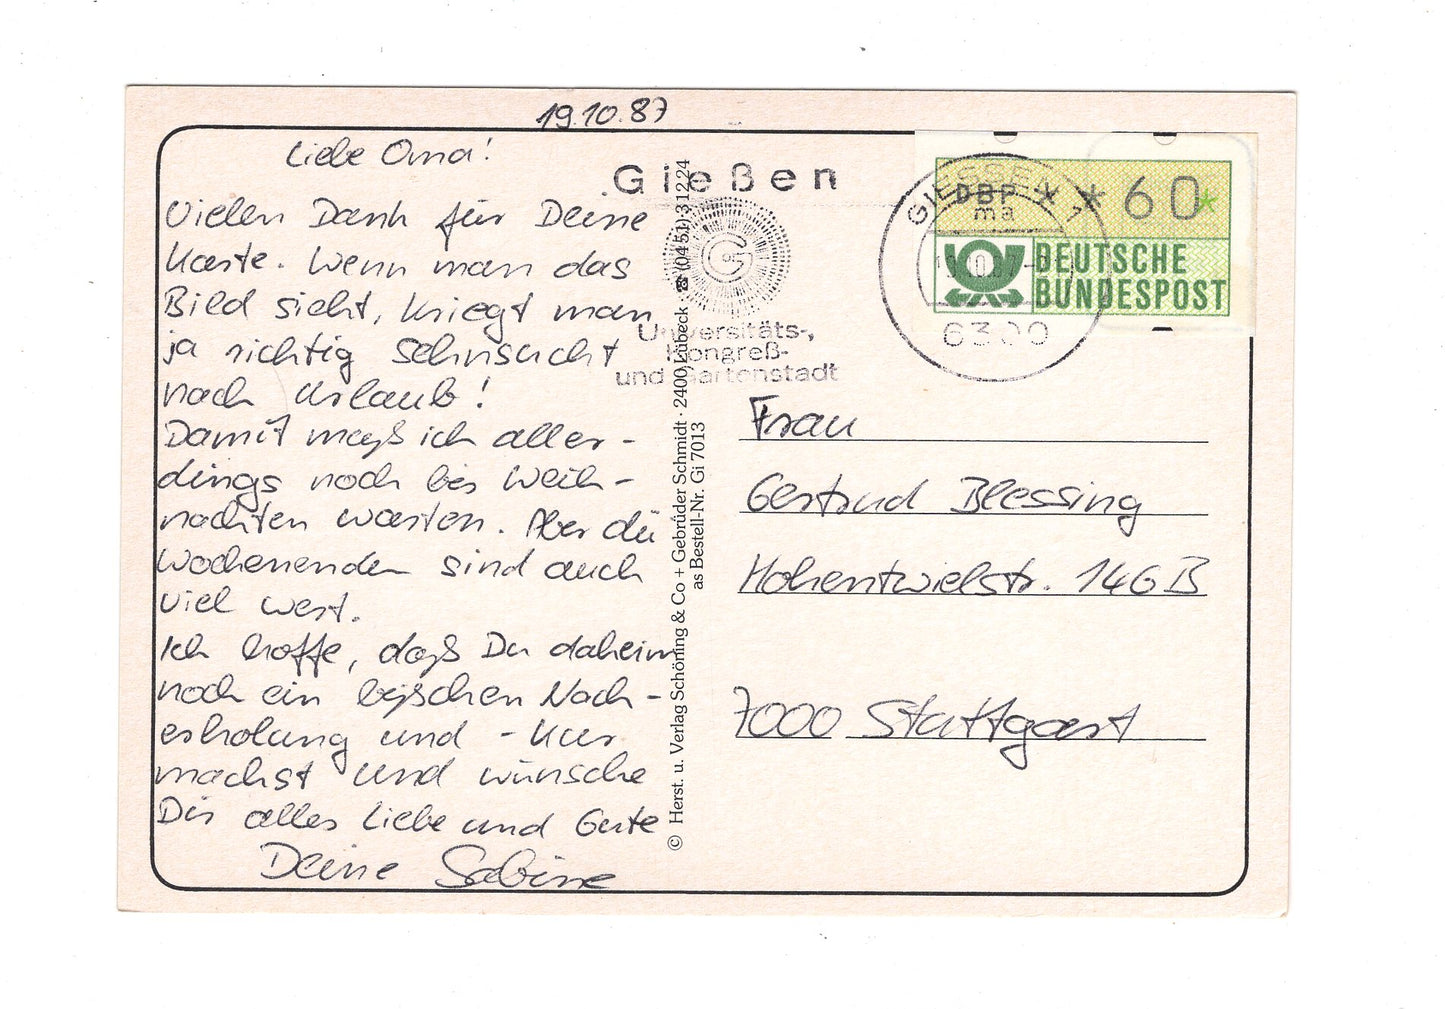 19.10.87
Liebe Oma!
Vielen Dank für Deine
Karte. Wenn man das
Bild sieht, kriegt man
ja richtig Sehnsucht
nach Urlaub!
Damit muß ich aller-
dings noch bis Weih-
nachten warten. Aber die
Wochenenden sind auch
viel wert.
Ich hoffe, daß Du daheim
noch ein bißchen Nach-
erholung und -Kur
machst und wünsche
Dir alles Liebe und Gute
Deine Sabine
Gießen
G
Universitäts-,
Kongreß-
und Gartenstadt
© Herst. u. Verlag Schöning & Co + Gebrüder Schmidt · 2400 Lübeck · ☎ (0451) 31224
as Bestell-Nr. Gi 7013
GIESSEN 1
ma
6300
DBP * * 60 *
DEUTSCHE
BUNDESPOST
Frau
Gertrud Blessing
Hohentwielstr. 146 B
7000 Stuttgart